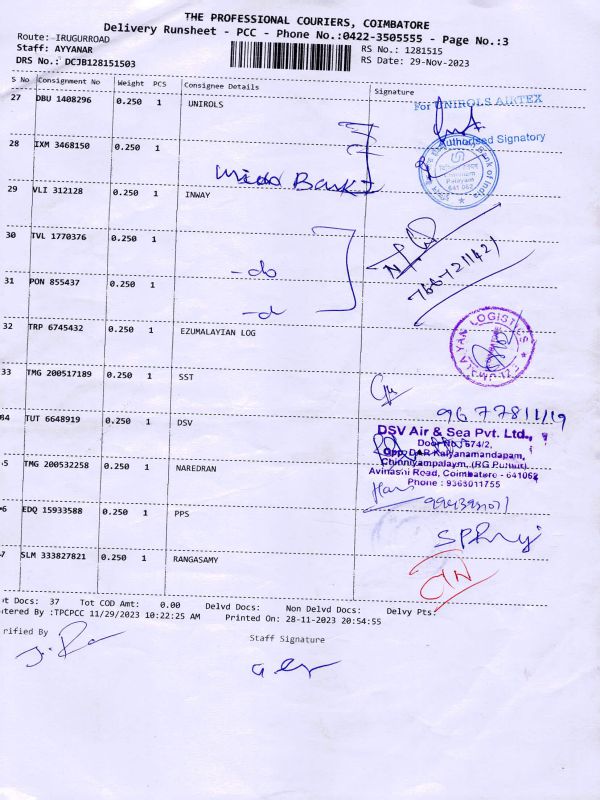 THE PROFESSIONAL COURIERS, COIMBATORE
Delivery Runsheet - PCC - Phone No.:0422-3505555 - Page No.:3
Route: IRUGURROAD
RS No.: 1281515
Staff: AYYANAR
RS Date: 29-Nov-2023
DRS No.: DCJB128151503
S No Consignment No Weight PCS Consignee Details Signature
27 DBU 1408296 0.250 1 UNIROLS
For UNIROLS AIRTEX
Authorised Signatory
28 IXM 3468150 0.250 1
Bank of India
Chinniam
Palayam
641 062
29 VLI 312128 0.250 1 INWAY
30 TVL 1770376 0.250 1 -do
31 PON 855437 0.250 1 -d
32 TRP 6745432 0.250 1 EZUMALAYIAN LOG
LOGISTICS
33 TMG 200517189 0.250 1 SST
9677811119
34 TUT 6648919 0.250 1 DSV
DSV Air & Sea Pvt. Ltd.,
Door No. 674/2,
Opp. DAR Kalyanamandapam,
Chinniyampalaym, (RG Pudur),
Avinashi Road, Coimbatore - 641062
Phone : 9363011755
5 TMG 200532258 0.250 1 NAREDRAN
6 EDQ 15933588 0.250 1 PPS
7 SLM 333827821 0.250 1 RANGASAMY
t Docs: 37 Tot COD Amt: 0.00 Delvd Docs: Non Delvd Docs: Delvy Pts:
tered By :TPCPCC 11/29/2023 10:22:25 AM Printed On: 28-11-2023 20:54:55
rified By
Staff Signature